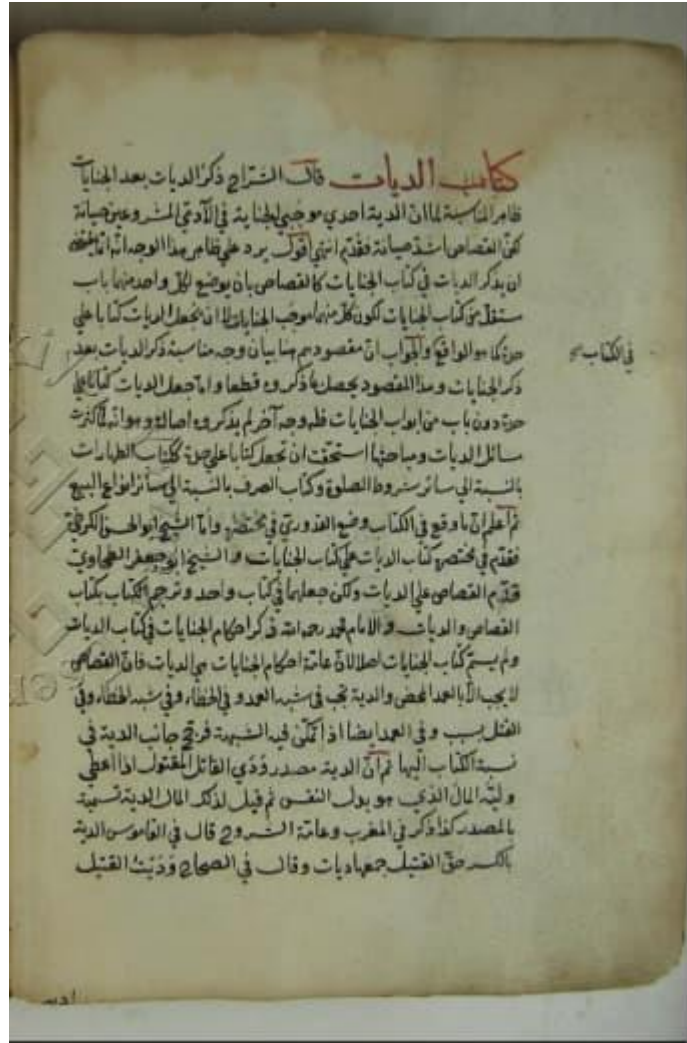 كتاب الديات قال الشراح ذكر الديات بعد الجنايات
ظاهر المناسبة لما ان الدية احدي موجبي الجناية في الآدمي المشروعين صيانة
لكن القصاص اشد صيانة فقدم انتهي اقول يرد علي ظاهر هذا الوجه انه انما يقتضي
ان يذكر الديات في كتاب الجنايات كالقصاص بان يوضع لكل واحد منهما باب
مستقل من كتاب الجنايات لكون كل منهما موجب الجنايات لا ان يجعل الديات كتابا علي
حدة كما هو الواقع والجواب ان مقصودهم هنا بيان وجه مناسبة ذكر الديات بعد
في الكتاب صح
ذكر الجنايات وهذا المقصود يحصل بما ذكروه قطعا واما جعل الديات كتابا علي
حدة دون باب من ابواب الجنايات فله وجه آخر لم يذكروه اصالة وهو انه لما كثرت
مسائل الديات ومباحثها استحقت ان تجعل كتابا علي حدة ككتاب الطهارات
بالنسبة الي سائر شروط الصلوة وكتاب الصرف بالنسبة الي سائر انواع البيع
ثم اعلم ان ما وقع في الكتاب وضع القدوري في مختصره واما الشيخ ابو الحسن الكرخي
فقدم في مختصره كتاب الديات علي كتاب الجنايات والشيخ ابو جعفر الطحاوي
قدم القصاص علي الديات ولكن جعلهما في كتاب واحد وترجم الكتاب بكتاب
القصاص والديات والامام محمد رحمه الله ذكر احكام الجنايات في كتاب الديات
ولم يسم كتاب الجنايات اصلا لان عامة احكام الجنايات هي الديات فان القصاص
لا يجب الا بالعمد المحض والدية تجب في شبه العمد وفي الخطاء وفي شبه الخطاء وفي
القتل بسبب وفي العمد ايضا اذا تمكن فيه الشبهة فرجح جانب الدية في
نسبة الكتاب اليها ثم ان الدية مصدر ودي القاتل المقتول اذا اعطي
وليه المال الذي هو بدل النفس ثم قيل لذلك المال الدية تسمية
بالمصدر كذا ذكر في المغرب وعامة الشروح قال في القاموس الدية
بالكسر حق القتيل جمعها ديات وقال في الصحاح وديت القتيل